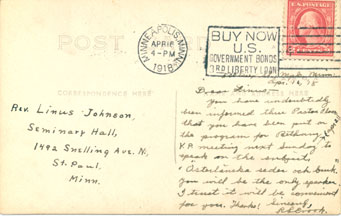 POST CARD
MINNEAPOLIS, MINN.
APR 16
4-PM
1918
BUY NOW
U.S.
GOVERNMENT BONDS
3RD LIBERTY LOAN
CORRESPONDENCE HERE
NAME AND ADDRESS HERE
Rev. Linus Johnson,
Seminary Hall,
1492 Snelling Ave. N.
St. Paul.
Minn.
Mpls, Minn.
Apr. 16, 18
Dear Linus:
You have undoubtedly
been informed thru Pastor
that you have been put on
the program for Bethany
Y.P. meeting next Sunday to
speak on the subject
"Österlandska seder och bruk."
You will be the only speaker.
I trust it will be convenient
for you. Thanks! Sincerely,